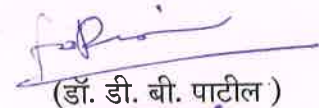 (डॉ. डी. बी. पाटील )